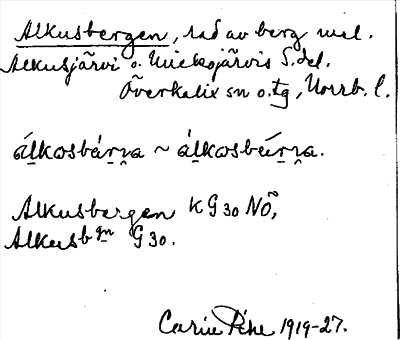 Alkusbergen, rad av berg mel.
Alkusjärvi o. Miekojärvis S. del.
Överkalix sn o. tg, Norrb. l.
álkosbárɲa ~ álkosbárɲa.
Alkusbergen K G 30 NÖ,
Alkusbgn G 30.
Carin Pihl 1919-27.